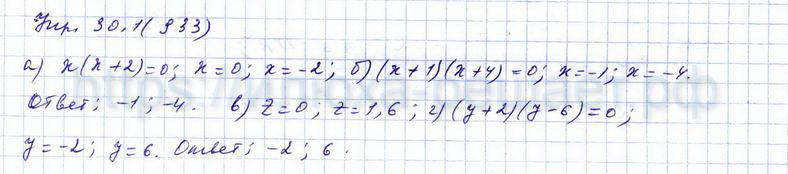 Упр. 30.1(933)
а) x(x+2)=0; x=0; x=-2; б) (x+1)(x+4)=0; x=-1; x=-4.
Ответ: -1; -4. в) z=0; z=1,6; г) (y+2)(y-6)=0;
y=-2; y=6. Ответ: -2; 6.